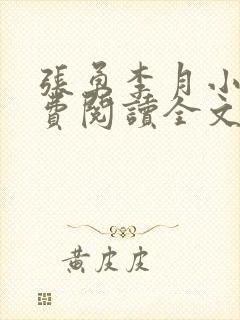 張勇李月小
費閱讀全文
黃皮皮